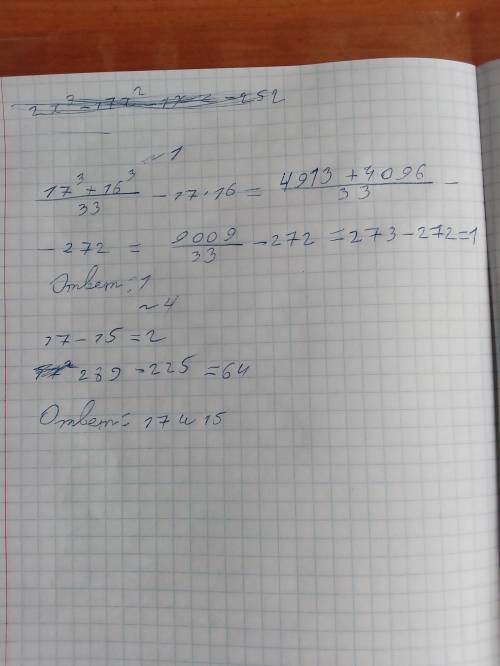 № 1
17³ + 16³ / 33 - 17 · 16 = 4913 + 4096 / 33 -
- 272 = 9009 / 33 - 272 = 273 - 272 = 1
Ответ: 1
№ 4
17 - 15 = 2
289 - 225 = 64
Ответ: 17 и 15